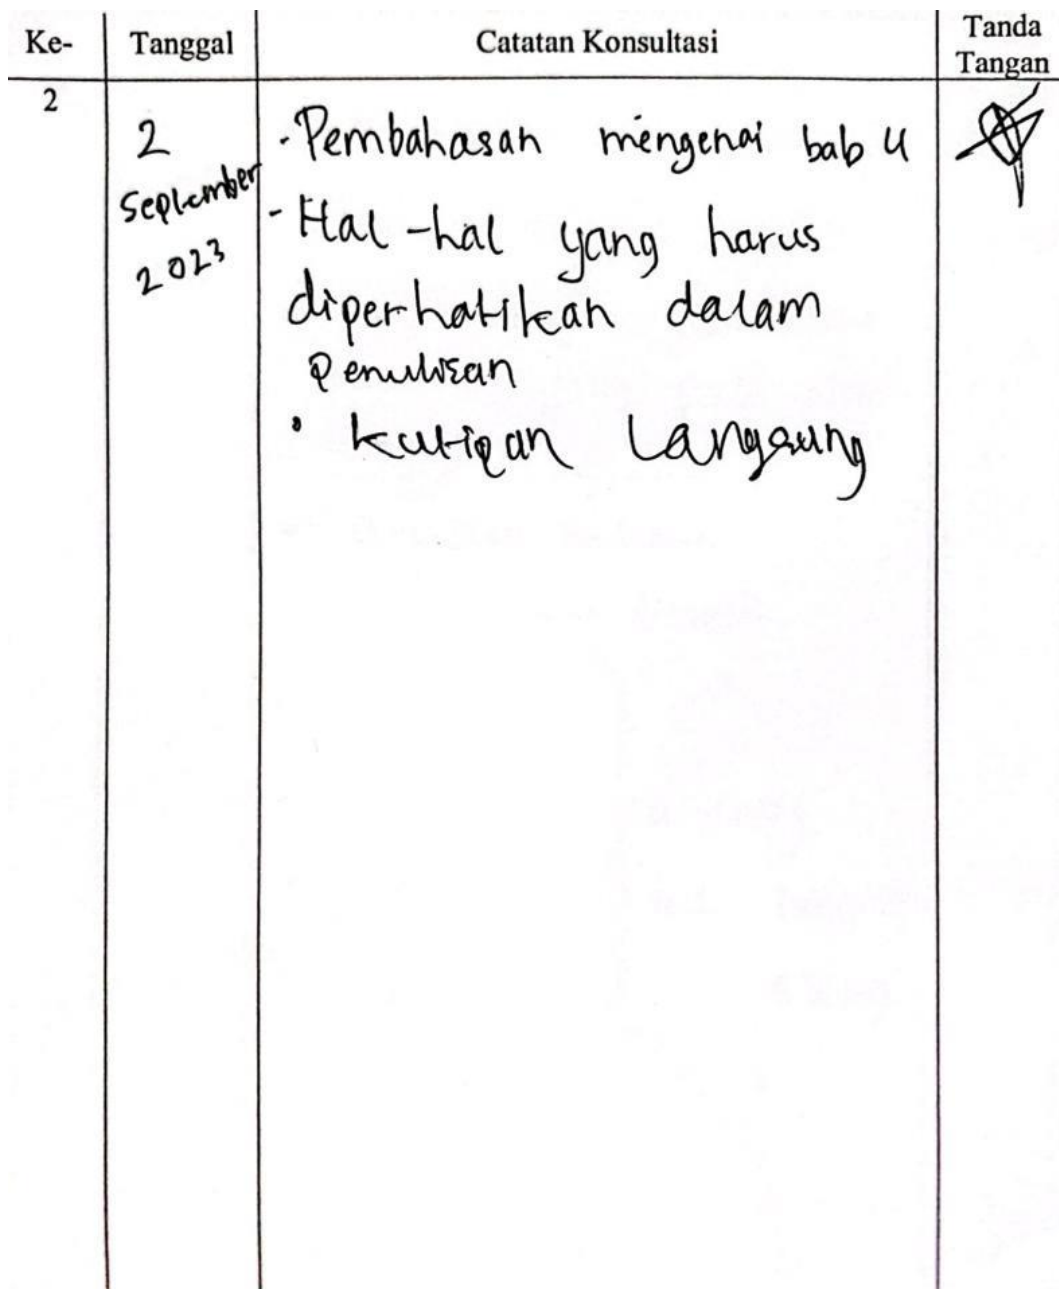 Ke-
Tanggal
Catatan Konsultasi
Tanda
Tangan
2
2
September
2023
- Pembahasan mengenai bab 4
- Hal-hal yang harus
diperhatikan dalam
penulisan
• kutipan Langsung